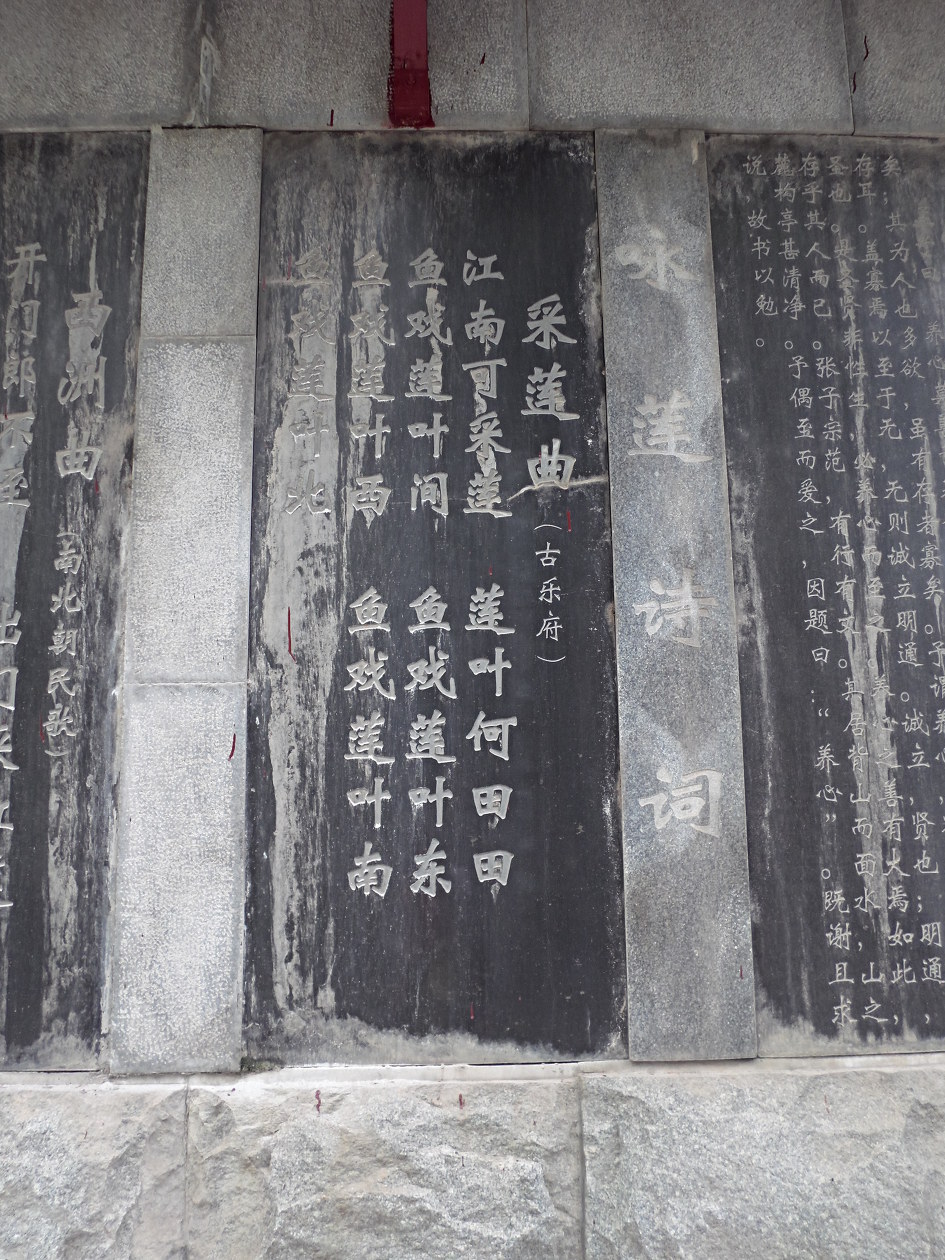 曰 养心莫善
矣；其为人也多欲，虽有存者寡矣。予谓养心
存耳。盖寡焉以至于无，无则诚立明通。诚立，贤也；明通，
圣也。是圣贤非性生，必养心而至之。养心之善有大焉如此，
存乎其人而已。张子宗范，有行有文。其居背山而面水，山之
麓构亭甚清净。予偶至而爱之，因题曰：“养心”。既谢且求
说 故书以勉。
咏莲诗词
采莲曲（古乐府）
江南可采莲 莲叶何田田
鱼戏莲叶间 鱼戏莲叶东
鱼戏莲叶西 鱼戏莲叶南
鱼戏莲叶北
西洲曲（南北朝民歌）
开门郎不至 出门采红莲